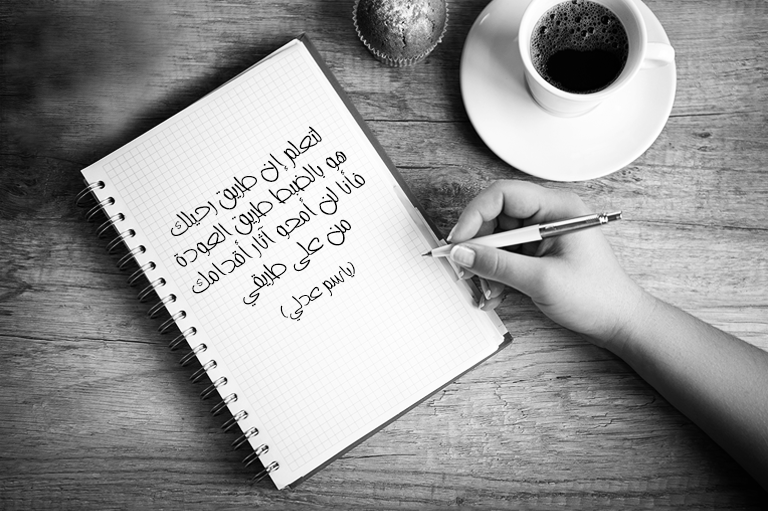 لتعلم إن طريق رحيلك
هو بالضبط طريق العودة
فأنا لن أمحو آثار أقدامك
من على طريقي
(باسم عدلي)